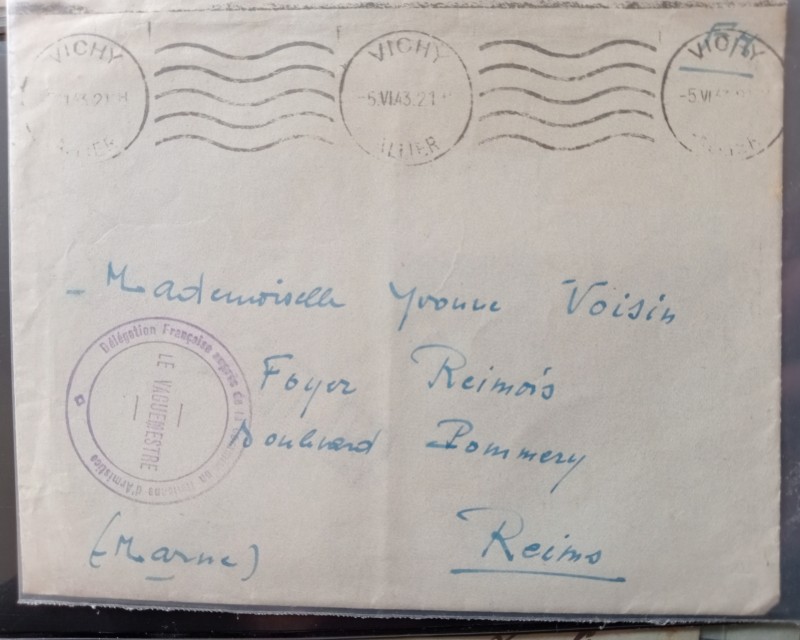 VICHY
ALLIER
VICHY
-5.VI.43.21 H
ALLIER
VICHY
-5 VI
ALLIER
F.M
- Mademoiselle Yvonne Voisin
Foyer Reimois
Boulevard Pommery
Reims
(Marne)
Délégation Française auprès de la Commission Italienne d'Armistice
LE VAGUEMESTRE